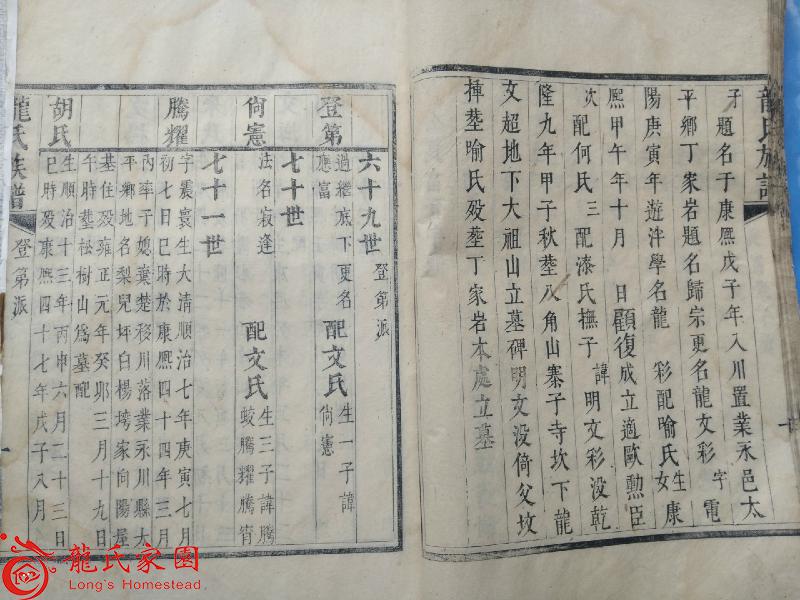 龍氏族譜
子題名于康熙戊子年入川置業永邑太
平鄉丁家岩題名歸宗更名龍文彩字電
陽庚寅年遊泮學名龍彩配喻氏生女康
熙甲午年十月日顧復成立適歐勲臣
次配何氏三配漆氏撫子諱明文彩没乾
隆九年甲子秋塟八角山寨子寺坎下龍
文超地下大祖山立墓碑明文没倚父坟
挿塟喻氏殁塟丁家岩本處立墓
六十九世 登第派
登第 過繼底下更名應富 配文氏 生一子諱尙憲
七十世
尙憲 法名寂逢 配文氏 生三子諱騰蛟騰耀騰霄
七十一世
騰耀 字震寰生大清順治七年庚寅七月
初七日巳時於康熙四十四年三月
内率子媳葉楚移川落業永川縣太
平鄉地名梨兒坪白楊塆家向陽屋
基住殁雍正元年癸卯三月十九日
午時塟松樹山爲墓配
胡氏 生順治十三年丙申六月二十三日
巳時殁康熙四十七年戊子八月
龍氏族譜 登第派 一
龍氏家園
Long's Homestead